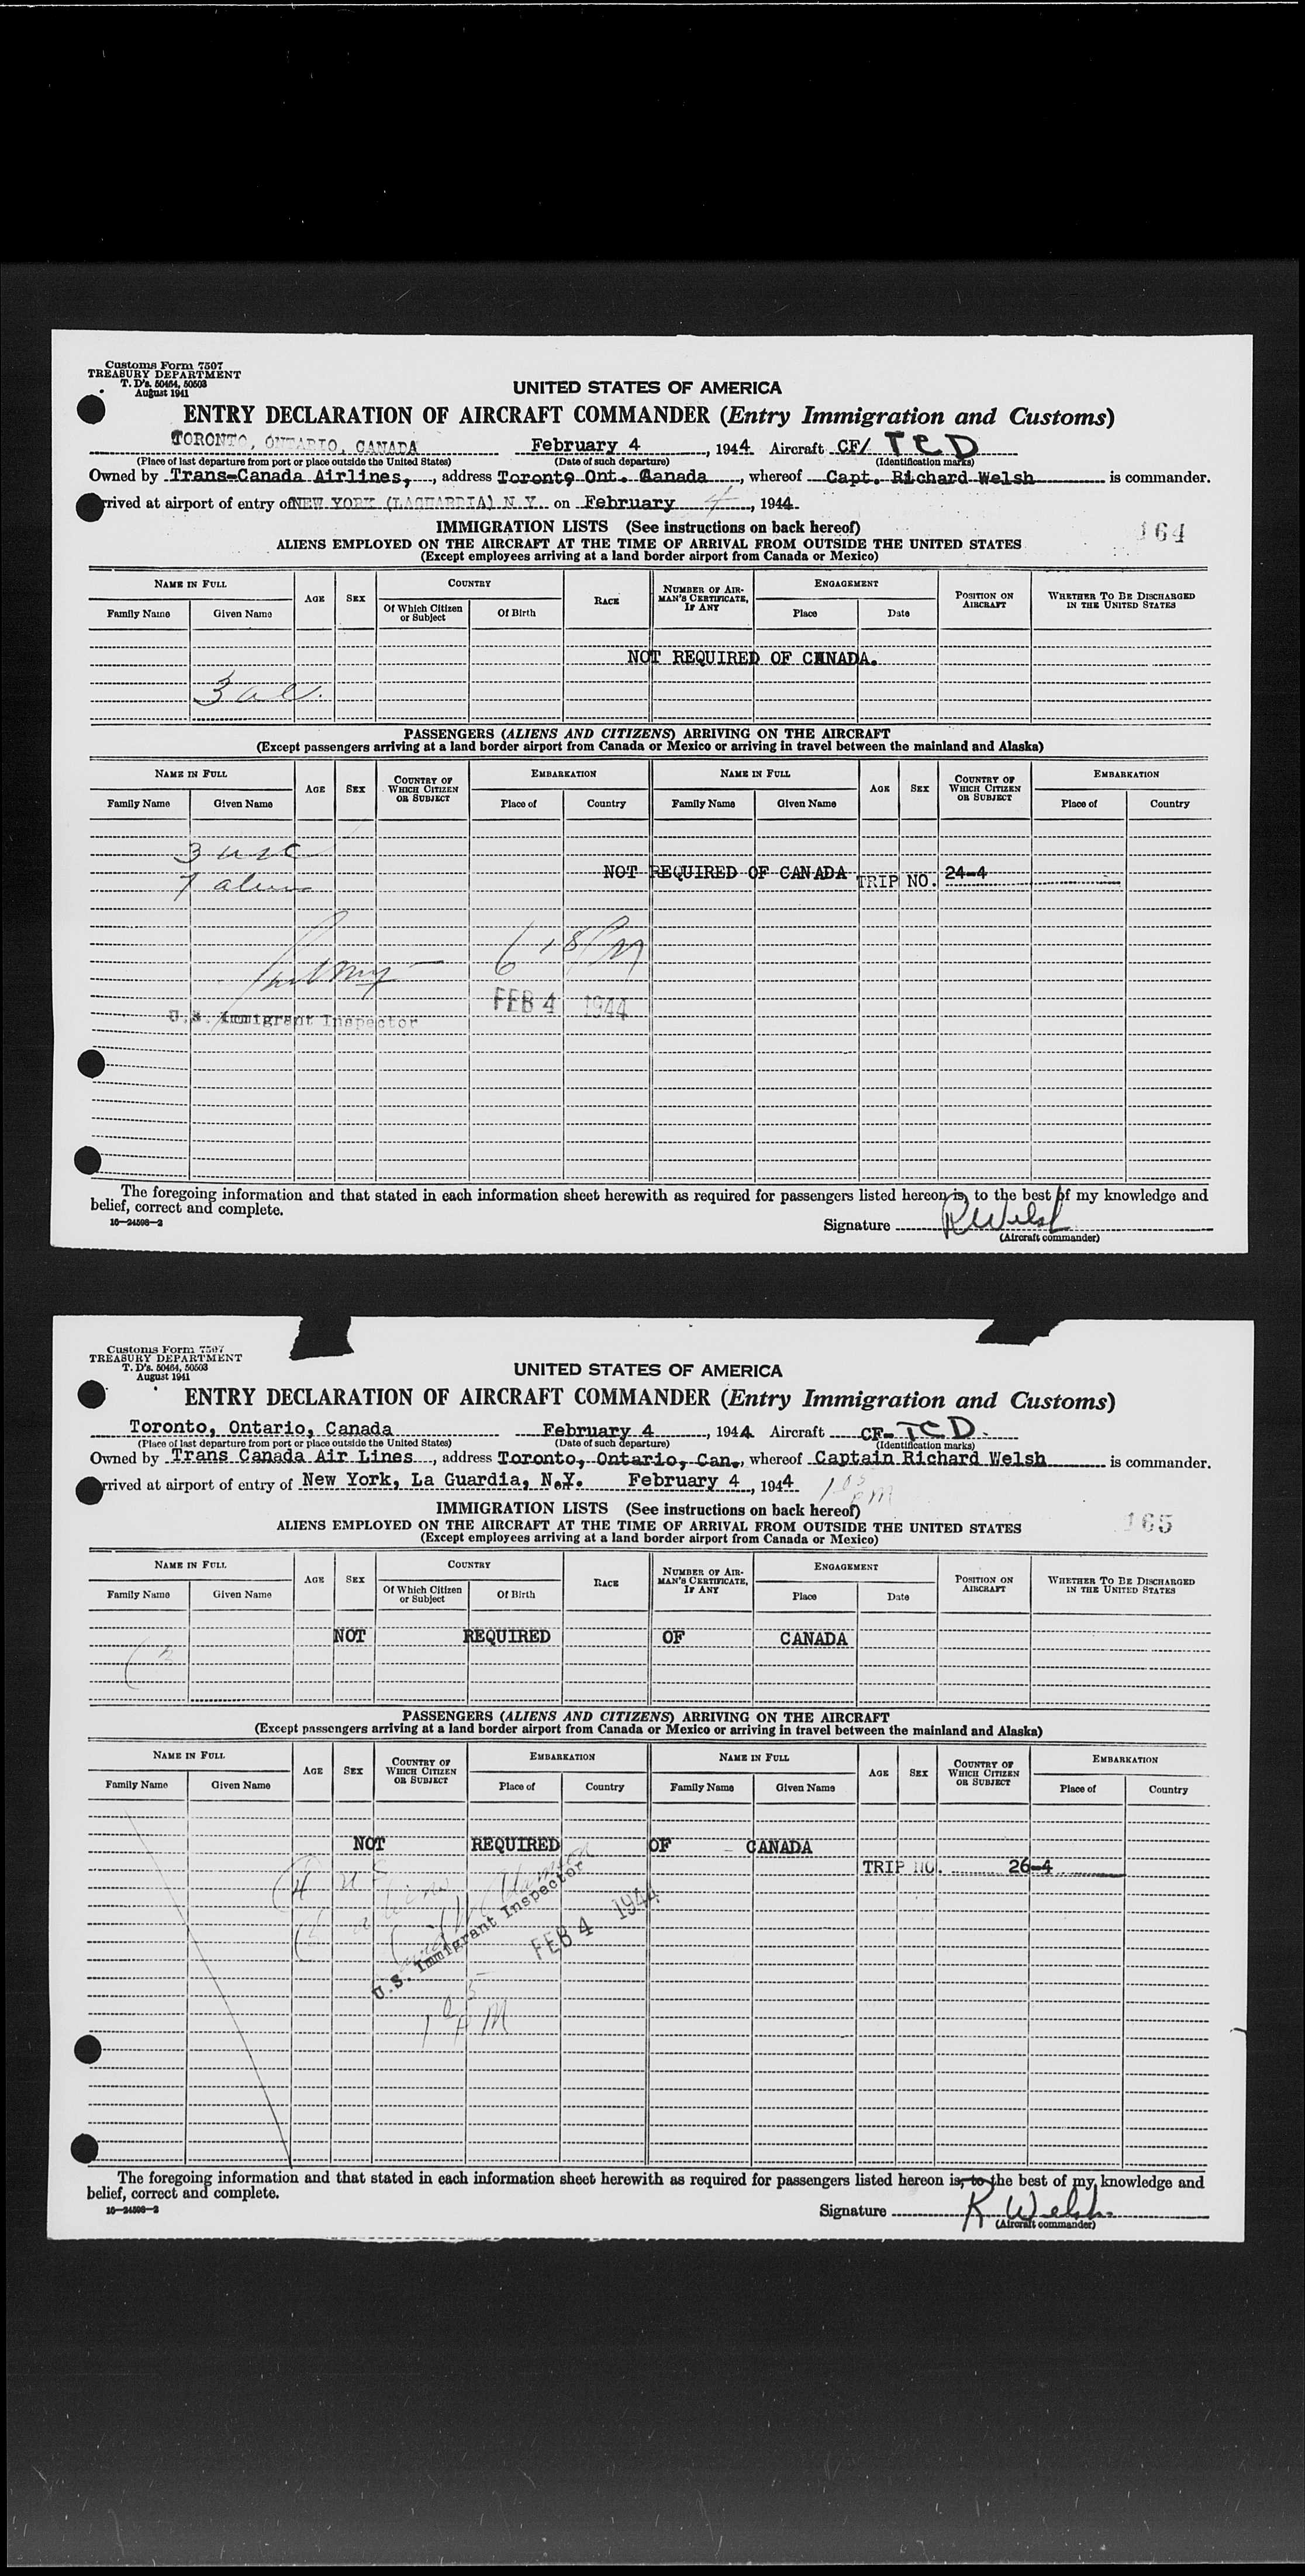 Customs Form 7507
TREASURY DEPARTMENT
T. D's. 50464, 50503
August 1941
UNITED STATES OF AMERICA
ENTRY DECLARATION OF AIRCRAFT COMMANDER (Entry Immigration and Customs)
TORONTO, ONTARIO, CANADA February 4, 1944 Aircraft CF/ TCD
(Place of last departure from port or place outside the United States) (Date of such departure) (Identification marks)
Owned by Trans-Canada Airlines, address Toronto Ont. Canada, whereof Capt. Richard Welsh is commander.
rrived at airport of entry of NEW YORK (LAGUARDIA) N.Y. on February 4, 1944
IMMIGRATION LISTS (See instructions on back hereof)
164
ALIENS EMPLOYED ON THE AIRCRAFT AT THE TIME OF ARRIVAL FROM OUTSIDE THE UNITED STATES
(Except employees arriving at a land border airport from Canada or Mexico)
NAME IN FULL AGE SEX COUNTRY RACE NUMBER OF AIRMAN'S CERTIFICATE, IF ANY ENGAGEMENT POSITION ON AIRCRAFT WHETHER TO BE DISCHARGED IN THE UNITED STATES
Family Name Given Name Of Which Citizen or Subject Of Birth Place Date
NOT REQUIRED OF CANADA.
PASSENGERS (ALIENS AND CITIZENS) ARRIVING ON THE AIRCRAFT
(Except passengers arriving at a land border airport from Canada or Mexico or arriving in travel between the mainland and Alaska)
NAME IN FULL AGE SEX COUNTRY OF WHICH CITIZEN OR SUBJECT EMBARKATION NAME IN FULL AGE SEX COUNTRY OF WHICH CITIZEN OR SUBJECT EMBARKATION
Family Name Given Name Place of Country Family Name Given Name Place of Country
3 usc
7 aliens
NOT REQUIRED OF CANADA TRIP NO. 24-4
FEB 4 1944
U.S. Immigrant Inspector
The foregoing information and that stated in each information sheet herewith as required for passengers listed hereon is, to the best of my knowledge and
belief, correct and complete.
16—24598—2
Signature R Welsh
(Aircraft commander)
Customs Form 7507
TREASURY DEPARTMENT
T. D's. 50464, 50503
August 1941
UNITED STATES OF AMERICA
ENTRY DECLARATION OF AIRCRAFT COMMANDER (Entry Immigration and Customs)
Toronto, Ontario, Canada February 4, 1944 Aircraft CF- TCD.
(Place of last departure from port or place outside the United States) (Date of such departure) (Identification marks)
Owned by Trans Canada Air Lines, address Toronto, Ontario, Can., whereof Captain Richard Welsh is commander.
rrived at airport of entry of New York, La Guardia, N.Y. February 4, 1944 1 05 PM
IMMIGRATION LISTS (See instructions on back hereof)
165
ALIENS EMPLOYED ON THE AIRCRAFT AT THE TIME OF ARRIVAL FROM OUTSIDE THE UNITED STATES
(Except employees arriving at a land border airport from Canada or Mexico)
NAME IN FULL AGE SEX COUNTRY RACE NUMBER OF AIRMAN'S CERTIFICATE, IF ANY ENGAGEMENT POSITION ON AIRCRAFT WHETHER TO BE DISCHARGED IN THE UNITED STATES
Family Name Given Name Of Which Citizen or Subject Of Birth Place Date
NOT REQUIRED OF CANADA
PASSENGERS (ALIENS AND CITIZENS) ARRIVING ON THE AIRCRAFT
(Except passengers arriving at a land border airport from Canada or Mexico or arriving in travel between the mainland and Alaska)
NAME IN FULL AGE SEX COUNTRY OF WHICH CITIZEN OR SUBJECT EMBARKATION NAME IN FULL AGE SEX COUNTRY OF WHICH CITIZEN OR SUBJECT EMBARKATION
Family Name Given Name Place of Country Family Name Given Name Place of Country
NOT REQUIRED OF CANADA
TRIP NO. 26-4
U.S. Immigrant Inspector
FEB 4 1944
1 05 PM
The foregoing information and that stated in each information sheet herewith as required for passengers listed hereon is, to the best of my knowledge and
belief, correct and complete.
16—24598—2
Signature R Welsh
(Aircraft commander)